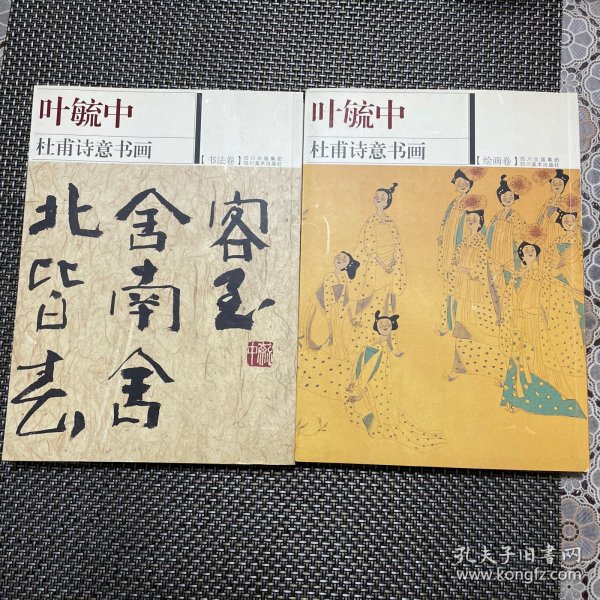 叶毓中
杜甫诗意书画
【书法卷】
四川出版集团
四川美术出版社
客至
舍南舍
北皆春
毓中
叶毓中
杜甫诗意书画
【绘画卷】
四川出版集团
四川美术出版社
孔夫子旧书网
www.kongfz.com